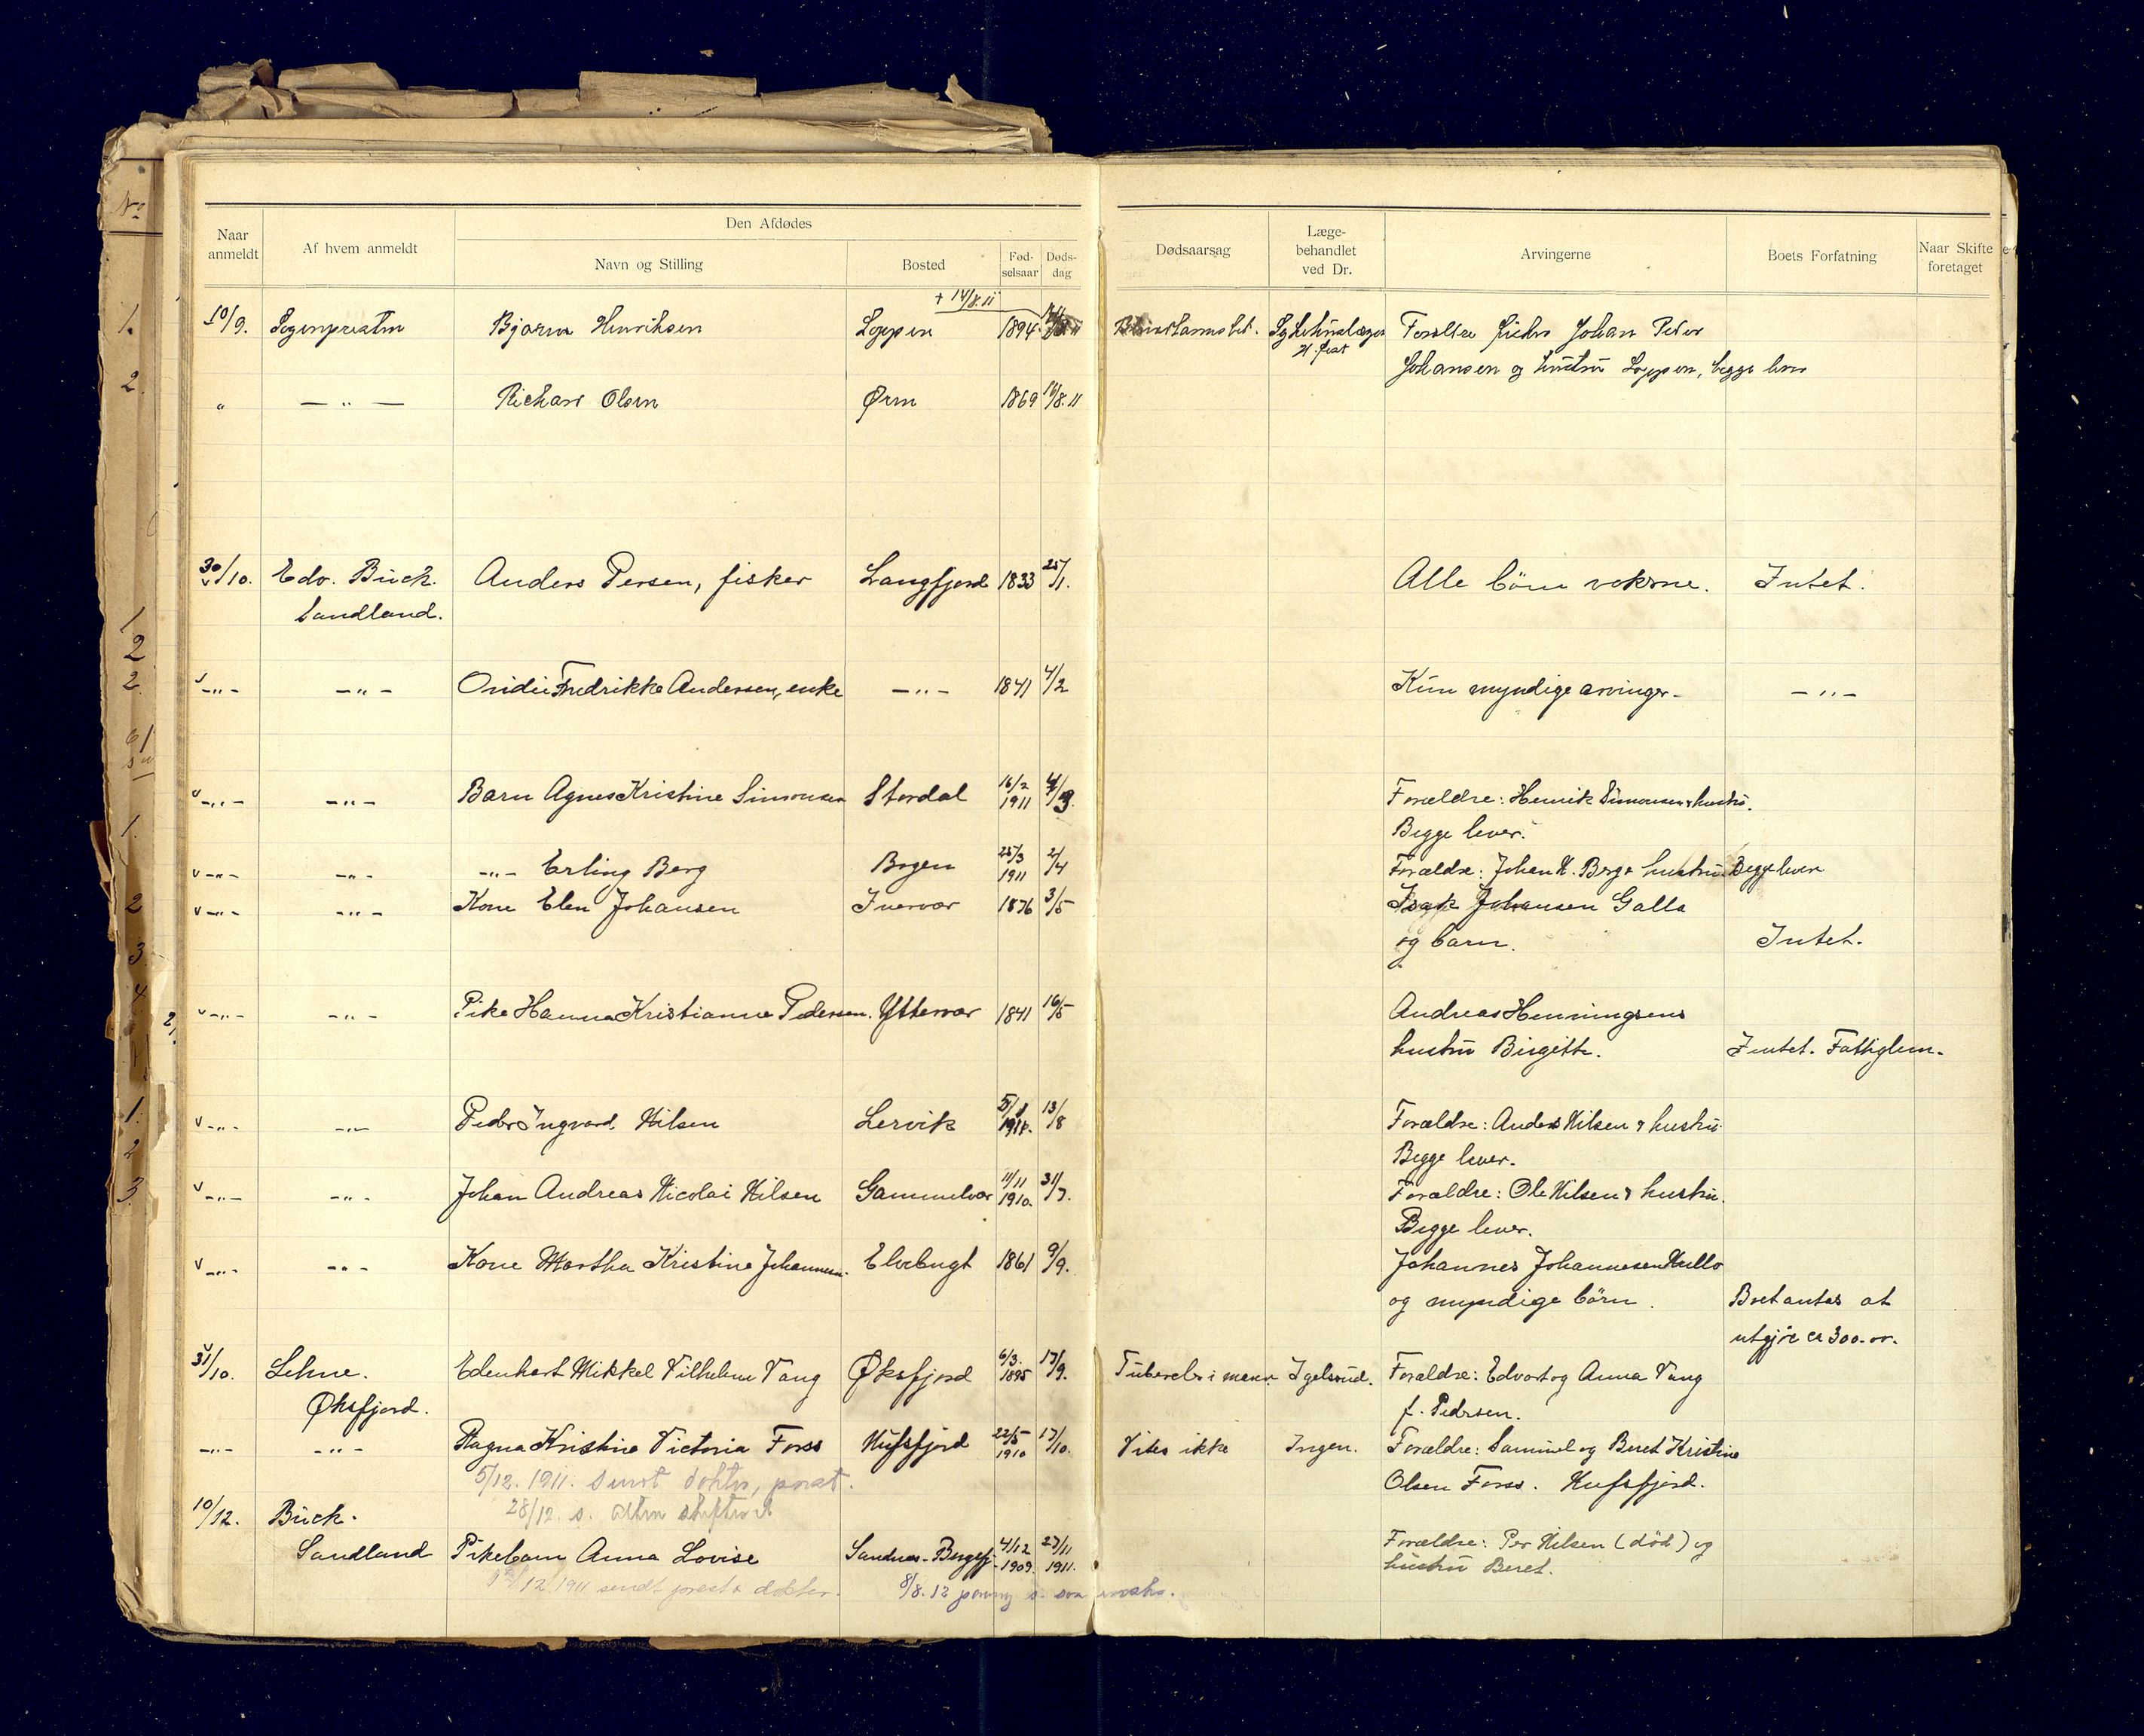 Naar anmeldt
Af hvem anmeldt
Den Afdødes
Navn og Stilling
Bosted
Fød-selsaar
Døds-dag
Dødsaarsag
Læge-behandlet ved Dr.
Arvingerne
Boets Forfatning
Naar Skifte foretaget
+ 14/8.11
10/9. Sogenpresten Bjarne Henriksen Loppen 1894 Forældre fisker Johan Peder
Johansen og hustru Loppen, begge lever
" — " — Richard Olsen 1869 16/8.11
30/10. Edv. Buck. Anders Persen, fisker Langfjord 1833 25/1. Alle börn voksne. Intet.
Sandland.
- " - - " - Fredrikke Andersen, enke - " - 1841 4/2 Kun myndige arvinger. - " -
- " - - " - Barn Agnes Kristine Simonsen Stordal 16/2 1911 Forældre: Henrik Simonsen & hustru.
Begge lever.
- " - - " - - " - Erling Berg Bogen 25/3 1911 2/4 Forældre: Johan H. Berg & hustru Begge lever
- " - - " - Kone Elen Johansen Ivervær 1876 3/5 Isak Johansen Galla
og barn. Intet.
- " - - " - Pike Hanna Kristianne Pedersen. Yttervær 1841 16/5 Andreas Henningsens
hustru Birgitte. Intet. Fattiglem.
- " - - " - Peder Ingvard Nilsen Lervik 13/8 Forældre: Anders Nilsen & hustru
Begge lever.
- " - - " - Johan Andreas Nicolai Nilsen Gammelvær 11/11 1910. 31/7. Forældre: Ole Nilsen & hustru.
Begge lever.
- " - - " - Kone Martha Kristine Johannesen. Elvebugt 1861 9/9. Johannes Johannesen
og myndige börn. Boet antas at
utgjöre ca 300.- kr.
31/10. Lehne. Edenhart Mikkel Vilhelm Vang Øksfjord 6/3. 1895 17/9. Igelsrud. Forældre: Edvart og Anna Vang
Øksfjord. f. Pedersen.
- " - - " - Ragna Kristine Victoria Forss Nufsfjord 22/5 1910 17/10. Vites ikke Ingen. Forældre: Samuel og Beret Kristine
5/12. 1911. sendt dokter, prest. Olsen Forss. Nufsfjord.
28/12. s.
10/12. Buck.
Sandland Pikebarn Anna Lovise Sandnes - Bergsfj. 4/12 1909. 27/11 1911. Forældre: Per Nilsen (död) og
hustru Beret.
12.1911 sendt prest & dokter. 8/8.12